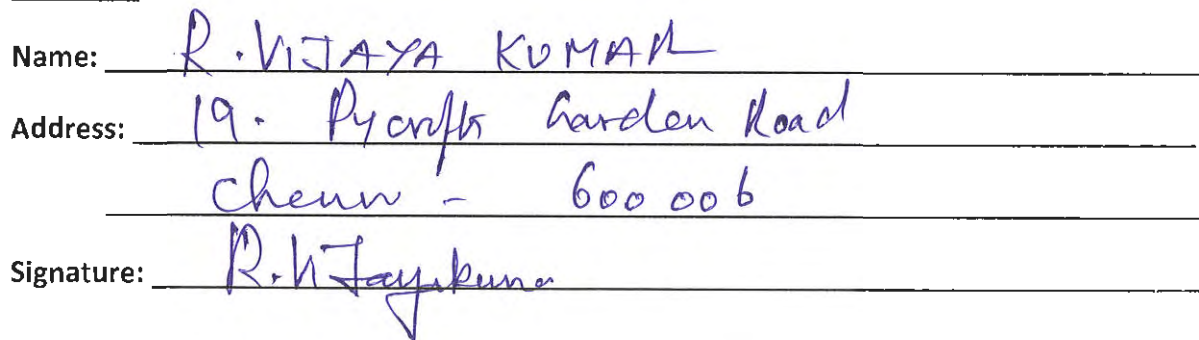 Name: R. VIJAYA KUMAR
Address: 19. Pycrofts Garden Road
Chenn - 600 006
Signature: R. Vijayakuma